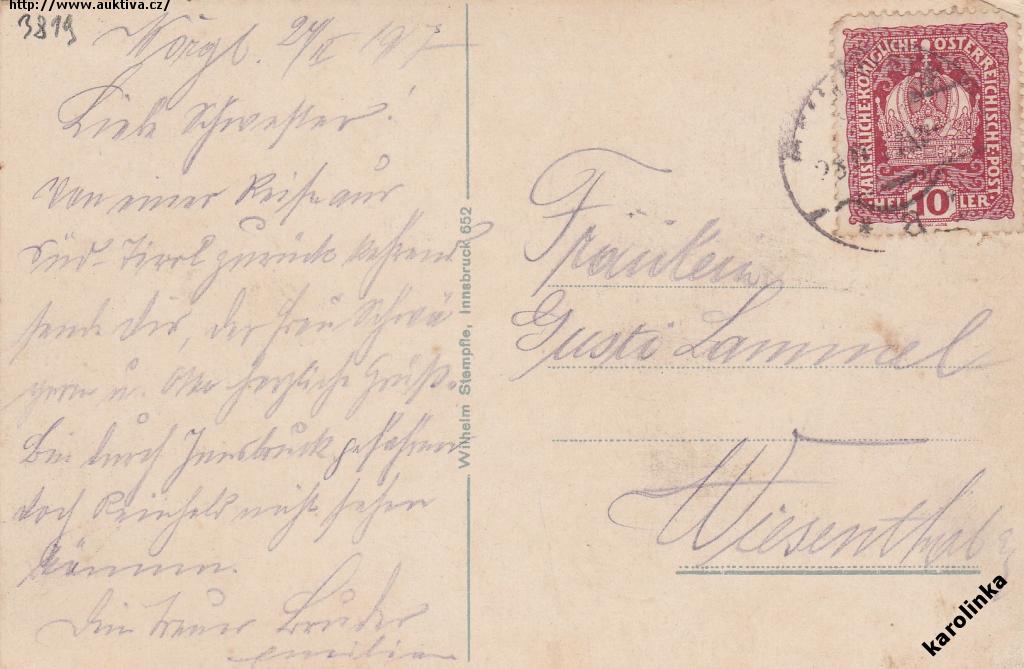 http://www.auktiva.cz/
3819
Wörgl. 24/II 1917
Liebe Schwester!
Von einer Reise aus
Süd-Tirol zurück kehrend
sende dir, der Frau Schwä
gerin u. Otto herzliche Grüße.
Bin durch Innsbruck gefahren
doch Reinhold nicht sehen
können.
Dein treuer Bruder
Emilian
Wilhelm Stempfle, Innsbruck 652
KAISERLICHE KÖNIGLICHE ÖSTERREICHISCHE POST
HELLER 10
Fräulein
Gusti Lammel
Wiesenthal
karolinka